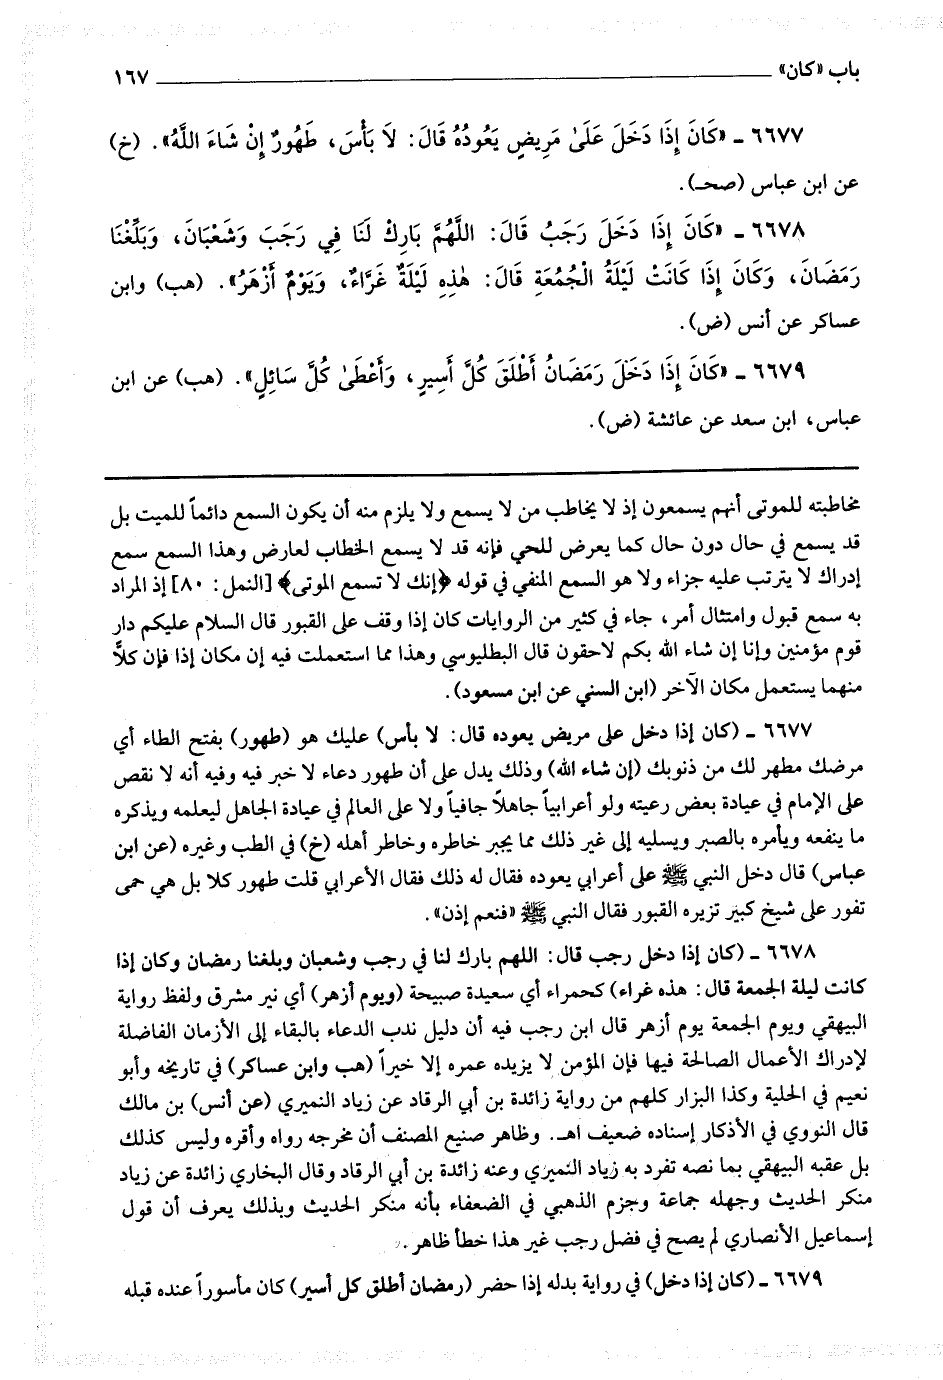 باب «كان» ١٦٧
٦٦٧٧ ـ «كَانَ إِذَا دَخَلَ عَلَىٰ مَرِيضٍ يَعُودُهُ قَالَ: لَا بَأْسَ، طَهُورٌ إِنْ شَاءَ اللَّهُ». (خ)
عن ابن عباس (صحـ).
٦٦٧٨ ـ «كَانَ إِذَا دَخَلَ رَجَبُ قَالَ: اللَّهُمَّ بَارِكْ لَنَا فِي رَجَبَ وَشَعْبَانَ، وَبَلِّغْنَا
رَمَضَانَ، وَكَانَ إِذَا كَانَتْ لَيْلَةُ الْجُمُعَةِ قَالَ: هٰذِهِ لَيْلَةٌ غَرَّاءُ، وَيَوْمٌ أَزْهَرُ». (هب) وابن
عساكر عن أنس (ض).
٦٦٧٩ ـ «كَانَ إِذَا دَخَلَ رَمَضَانُ أَطْلَقَ كُلَّ أَسِيرٍ، وَأَعْطَىٰ كُلَّ سَائِلٍ». (هب) عن ابن
عباس، ابن سعد عن عائشة (ض).
مخاطبته للموتى أنهم يسمعون إذ لا يخاطب من لا يسمع ولا يلزم منه أن يكون السمع دائماً للميت بل
قد يسمع في حال دون حال كما يعرض للحي فإنه قد لا يسمع الخطاب لعارض وهذا السمع سمع
إدراك لا يترتب عليه جزاء ولا هو السمع المنفي في قوله ﴿إنك لا تسمع الموتى﴾ [النمل: ٨٠] إذ المراد
به سمع قبول وامتثال أمر، جاء في كثير من الروايات كان إذا وقف على القبور قال السلام عليكم دار
قوم مؤمنين وإنا إن شاء الله بكم لاحقون قال البطليوسي وهذا مما استعملت فيه إن مكان إذا فإن كلاًّ
منهما يستعمل مكان الآخر (ابن السني عن ابن مسعود).
٦٦٧٧ ـ (كان إذا دخل على مريض يعوده قال: لا بأس) عليك هو (طهور) بفتح الطاء أي
مرضك مطهر لك من ذنوبك (إن شاء الله) وذلك يدل على أن طهور دعاء لا خبر فيه وفيه أنه لا نقص
على الإمام في عيادة بعض رعيته ولو أعرابياً جاهلاً جافياً ولا على العالم في عيادة الجاهل ليعلمه ويذكره
ما ينفعه ويأمره بالصبر ويسليه إلى غير ذلك مما يجبر خاطره وخاطر أهله (خ) في الطب وغيره (عن ابن
عباس) قال دخل النبي ﷺ على أعرابي يعوده فقال له ذلك فقال الأعرابي قلت طهور كلا بل هي حمى
تفور على شيخ كبير تزيره القبور فقال النبي ﷺ «فنعم إذن».
٦٦٧٨ ـ (كان إذا دخل رجب قال: اللهم بارك لنا في رجب وشعبان وبلغنا رمضان وكان إذا
كانت ليلة الجمعة قال: هذه غراء) كحمراء أي سعيدة صبيحة (ويوم أزهر) أي نير مشرق ولفظ رواية
البيهقي ويوم الجمعة يوم أزهر قال ابن رجب فيه أن دليل ندب الدعاء بالبقاء إلى الأزمان الفاضلة
لإدراك الأعمال الصالحة فيها فإن المؤمن لا يزيده عمره إلا خيراً (هب وابن عساكر) في تاريخه وأبو
نعيم في الحلية وكذا البزار كلهم من رواية زائدة بن أبي الرقاد عن زياد النميري (عن أنس) بن مالك
قال النووي في الأذكار إسناده ضعيف اهـ. وظاهر صنيع المصنف أن مخرجه رواه وأقره وليس كذلك
بل عقبه البيهقي بما نصه تفرد به زياد النميري وعنه زائدة بن أبي الرقاد وقال البخاري زائدة عن زياد
منكر الحديث وجهله جماعة وجزم الذهبي في الضعفاء بأنه منكر الحديث وبذلك يعرف أن قول
إسماعيل الأنصاري لم يصح في فضل رجب غير هذا خطأ ظاهر.
٦٦٧٩ ـ (كان إذا دخل) في رواية بدله إذا حضر (رمضان أطلق كل أسير) كان مأسوراً عنده قبله